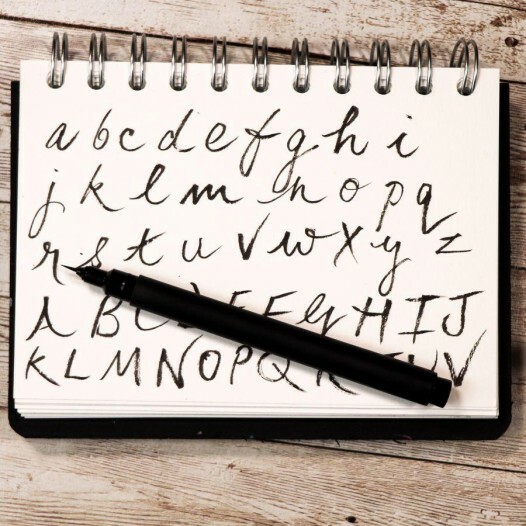 a b c d e f g h i
j k l m n o p q
r s t u v w x y z
A B C D E F G H I J
K L M N O P Q R T U V